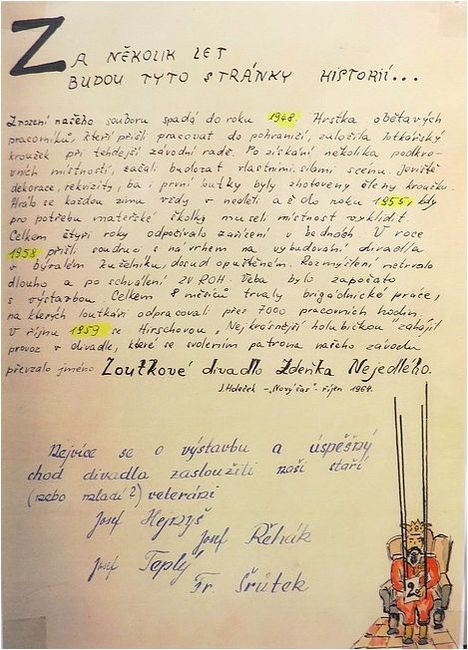 ZA NĚKOLIK LET
BUDOU TYTO STRÁNKY HISTORIÍ...
Zrození našeho souboru spadá do roku 1948. Hrstka obětavých
pracovníků, kteří přišli pracovat do pohraničí, založila loutkářský
kroužek při tehdejší závodní radě. Po získání několika podkro-
vních místností, začali budovat vlastními silami scénu. Jeviště
dekorace, rekvizity, ba i první loutky byly zhotoveny členy kroužku.
Hrálo se každou zimu vždy v neděli a až do roku 1955, kdy
pro potřebu mateřské školky museli místnost vyklidit.
Celkem čtyři roky odpočívalo zařízení v bednách. V roce
1958 přišli soudruzi s návrhem na vybudování divadla
v bývalém kuželníku, dosud opuštěném. Rozmýšlení netrvalo
dlouho a po schválení ZV ROH. Třeba bylo započato
s výstavbou. Celkem 8 měsíců trvaly brigádnické práce,
na kterých loutkáři odpracovali přes 7000 pracovních hodin.
V říjnu 1959 se Hirschovou "Nejkrásnější holubičkou" zahájil
provoz v divadle, které se svolením patrona našeho závodu
převzalo jméno Loutkové divadlo Zdeňka Nejedlého.
J. Hdeček - "Nový čas" - říjen 1969.
Nejvíce se o výstavbu a úspěšný
chod divadla zasloužili naši staří
(nebo mladí?) veteráni
Josef Hejpyš
Josef Řehák
Josef Teplý
Fr. Šrůtek
2.